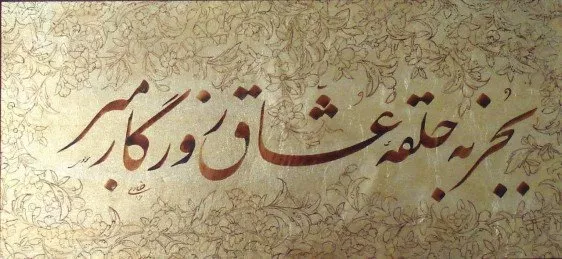 بجز به حلقهٔ عشاق روزگار مبر